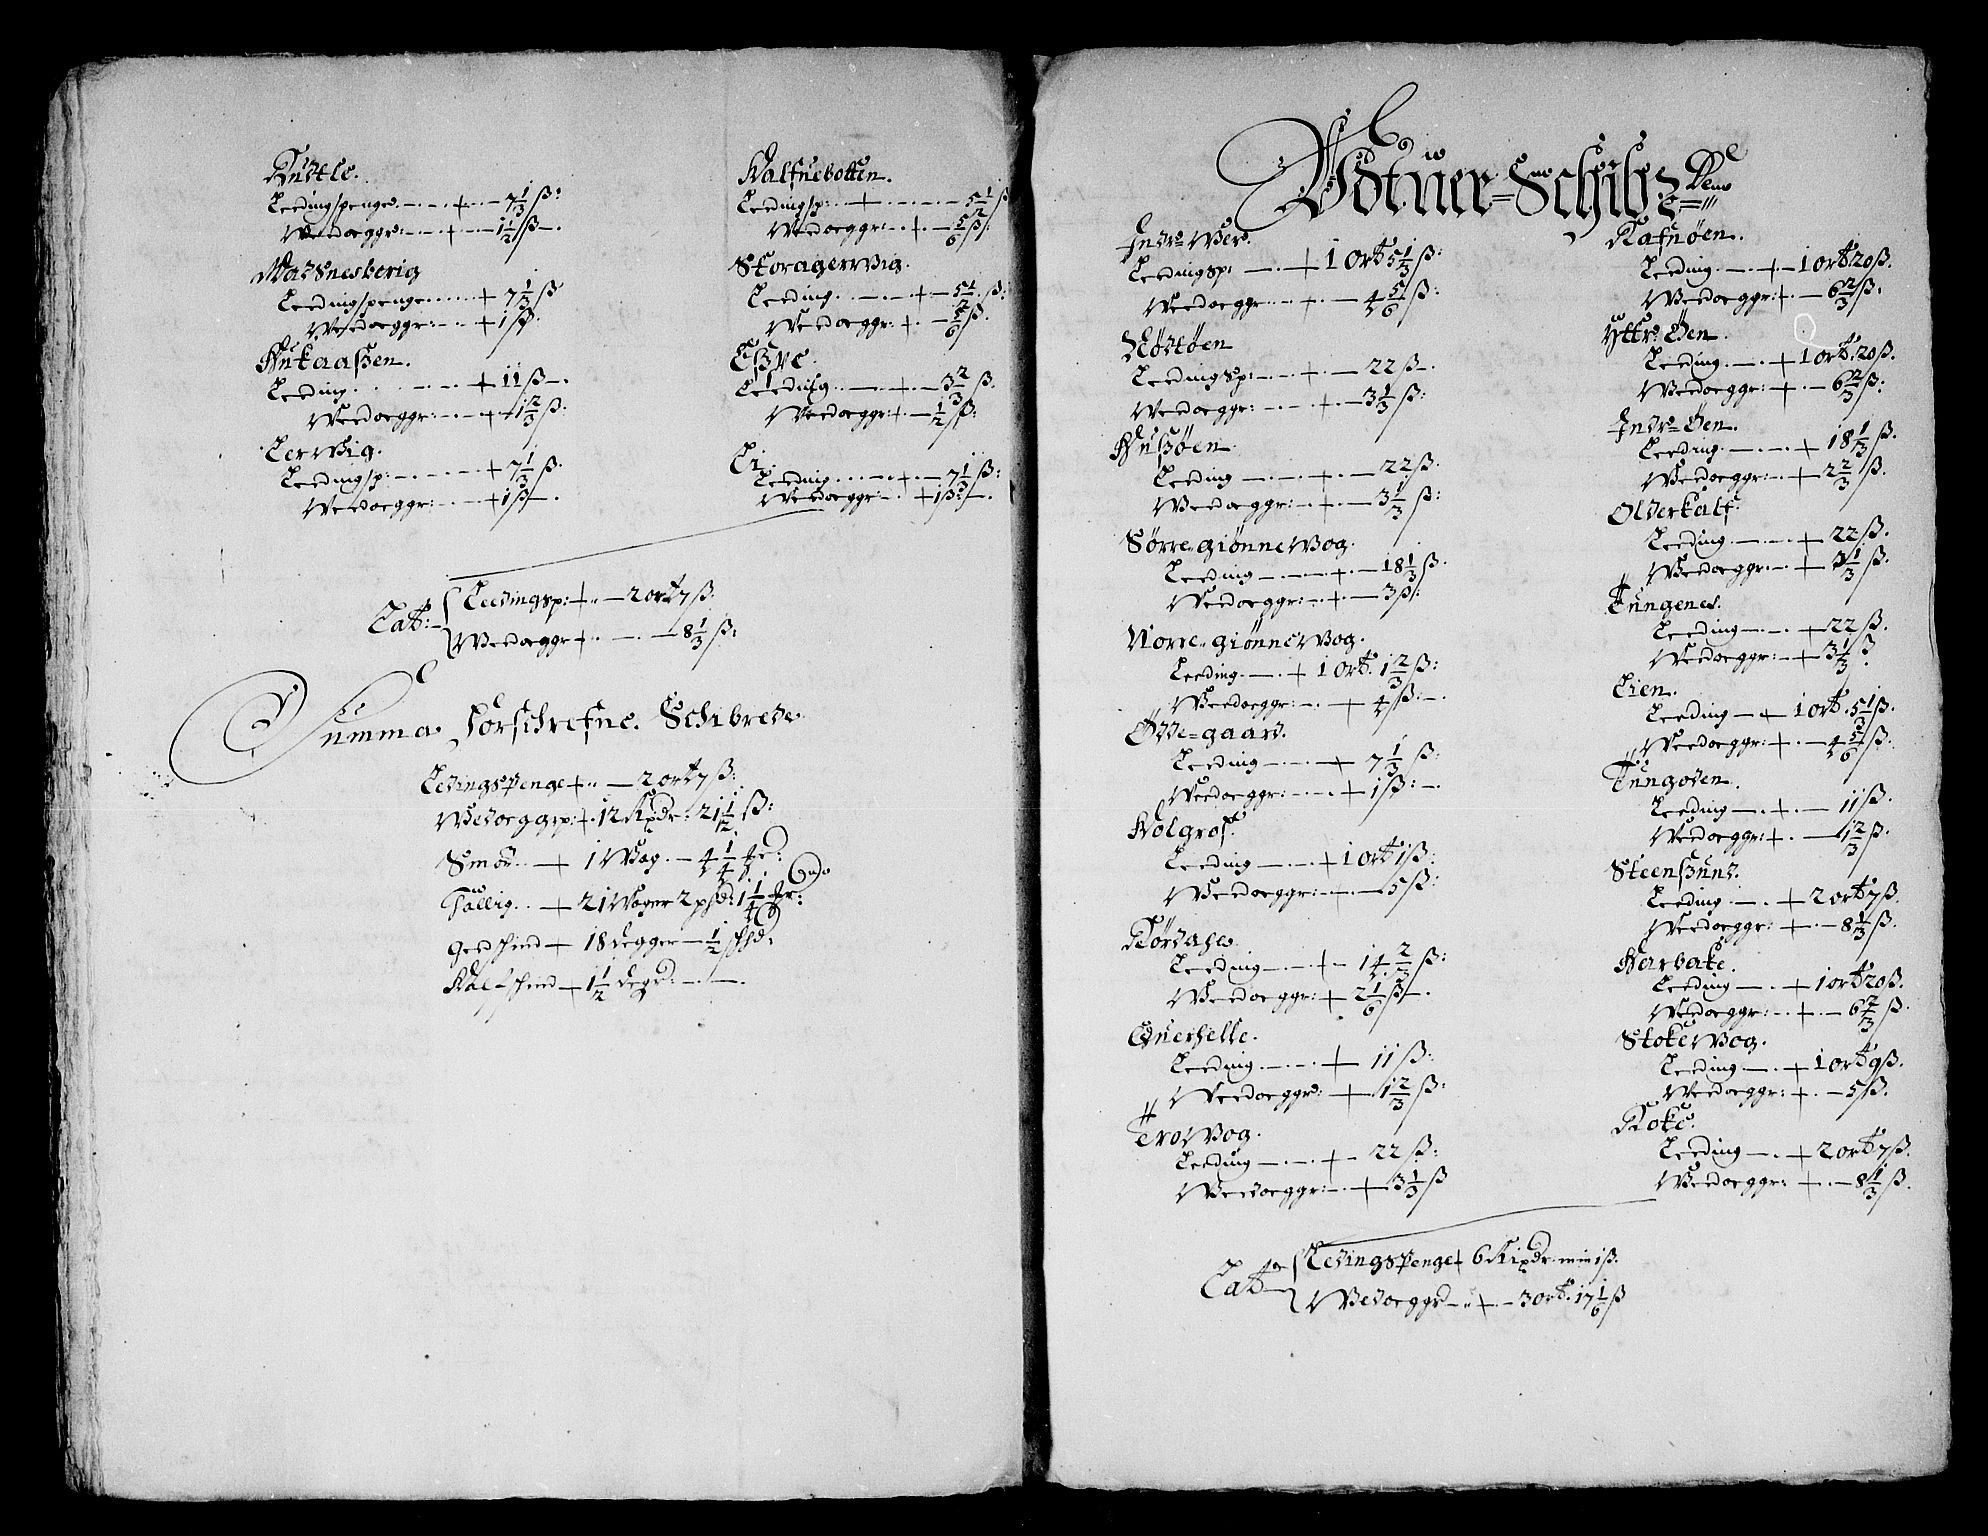 Leedingspenge + 7 1/3 ß:
Weedoeggr: + 1 1/2 ß
Madsnesberig
Leedingspenge + 7 1/3 ß
Weedoeggr: + 1 ß:
Leeding + 11 ß
Weedoeggr: + 1 2/3 ß:
Lerwig.
Leedingsp: + 7 1/3 ß.
Weedoeggr: + 1 ß
Kalfnebotten.
Leedingsp: + 5 1/2 ß
Weedoeggr: + 5/6 ß:
Storagerwig.
Leeding + 5 1/2 ß:
Weedoeggr: + 5/6 ß.
Leeding + 3 2/3 ß.
Weedoeggr: + 1/2 ß:
Lj.
Leeding + 7 1/3 ß:
Weedoeggr: + 1 ß:
Lat: Leedingsp: + 2 ort 7 ß:
Weedoeggr + 8 1/3 ß:
Summa forschrefne Schibrede
Ledingspenge + 2 ort 7 ß:
Wedoeggsp: + 12 Rixdr: 21 1/2 ß:
Smør + 1 Wog 4 1/4
Tallig + 21 Woger 2 pßd: 1 1/4
Geed schind + 18 degger 1/2
Kalfschind + 1 1/2 degr:
Udtuer Schibrede
Indre Were.
Leedingsp: + 1 Ort 5 1/3 ß:
Weedoeggr: + 4 5/6 ß:
Nødtøen
Leedingsp: + 22 ß
Weedoeggr: + 3 1/3 ß:
Hußøen
Leeding + 22 ß.
Weedoeggr: + 3 1/3 ß:
Sørre giønne Wog.
Leeding + 18 1/3 ß.
Weedoeggr: + 3 ß:
Norre giønne Wog.
Leeding + 1 Ort 1 2/3 ß:
Weedoeggr: + 4 ß:
Ødde-gaard.
Leeding + 7 1/3 ß:
Weedoeggr: + 1 ß:
Kolgrof.
Leeding + 1 Ort 1 ß:
Weedoeggr: 5 ß:
Leeding + 14 2/3 ß:
Weedoeggr: + 2 1/6 ß
Querhelle.
Leeding + 11 ß:
Weedoeggr: + 1 2/3 ß:
Tro Wog.
Leeding + 22 ß:
Weedoeggr: + 3 1/3 ß
Rafnøen.
Leeding + 1 ort 20 ß.
Weedoeggr: + 6 2/3 ß:
Yttre Øen.
Leeding + 1 ort 20 ß.
Weedoeggr: + 6 2/3 ß:
Indre Øen.
Leeding + 18 1/3 ß.
Weedoeggr: + 2 2/3 ß.
Olderkalf.
Leeding + 22 ß.
Weedoeggr: + 3 1/3 ß.
Tungenes.
Leeding + 22 ß.
Weedoeggr: + 3 1/3 ß
Lien.
Leeding + 1 ort 5 1/3 ß.
Weedoeggr: + 4 5/6 ß:
Tungoden.
Leeding + 11 ß.
Weedoeggr: + 1 2/3 ß.
Steensund.
Leeding + 2 ort 7 ß.
Weedoeggr: + 8 1/3 ß.
Harbake.
Leeding + 1 ort 20 ß.
Weedoeggr: + 6 2/3 ß.
Stoke Wog.
Leeding + 1 ort 9 ß.
Weedoeggr: + 5 ß.
Roke.
Leeding + 2 ort 7 ß.
Weedoeggr: + 8 1/3 ß.
Lat: Ledingspenge + 6 Rixdr. min 1 ß.
Wedoeggr + 3 ort. 17 1/6 ß